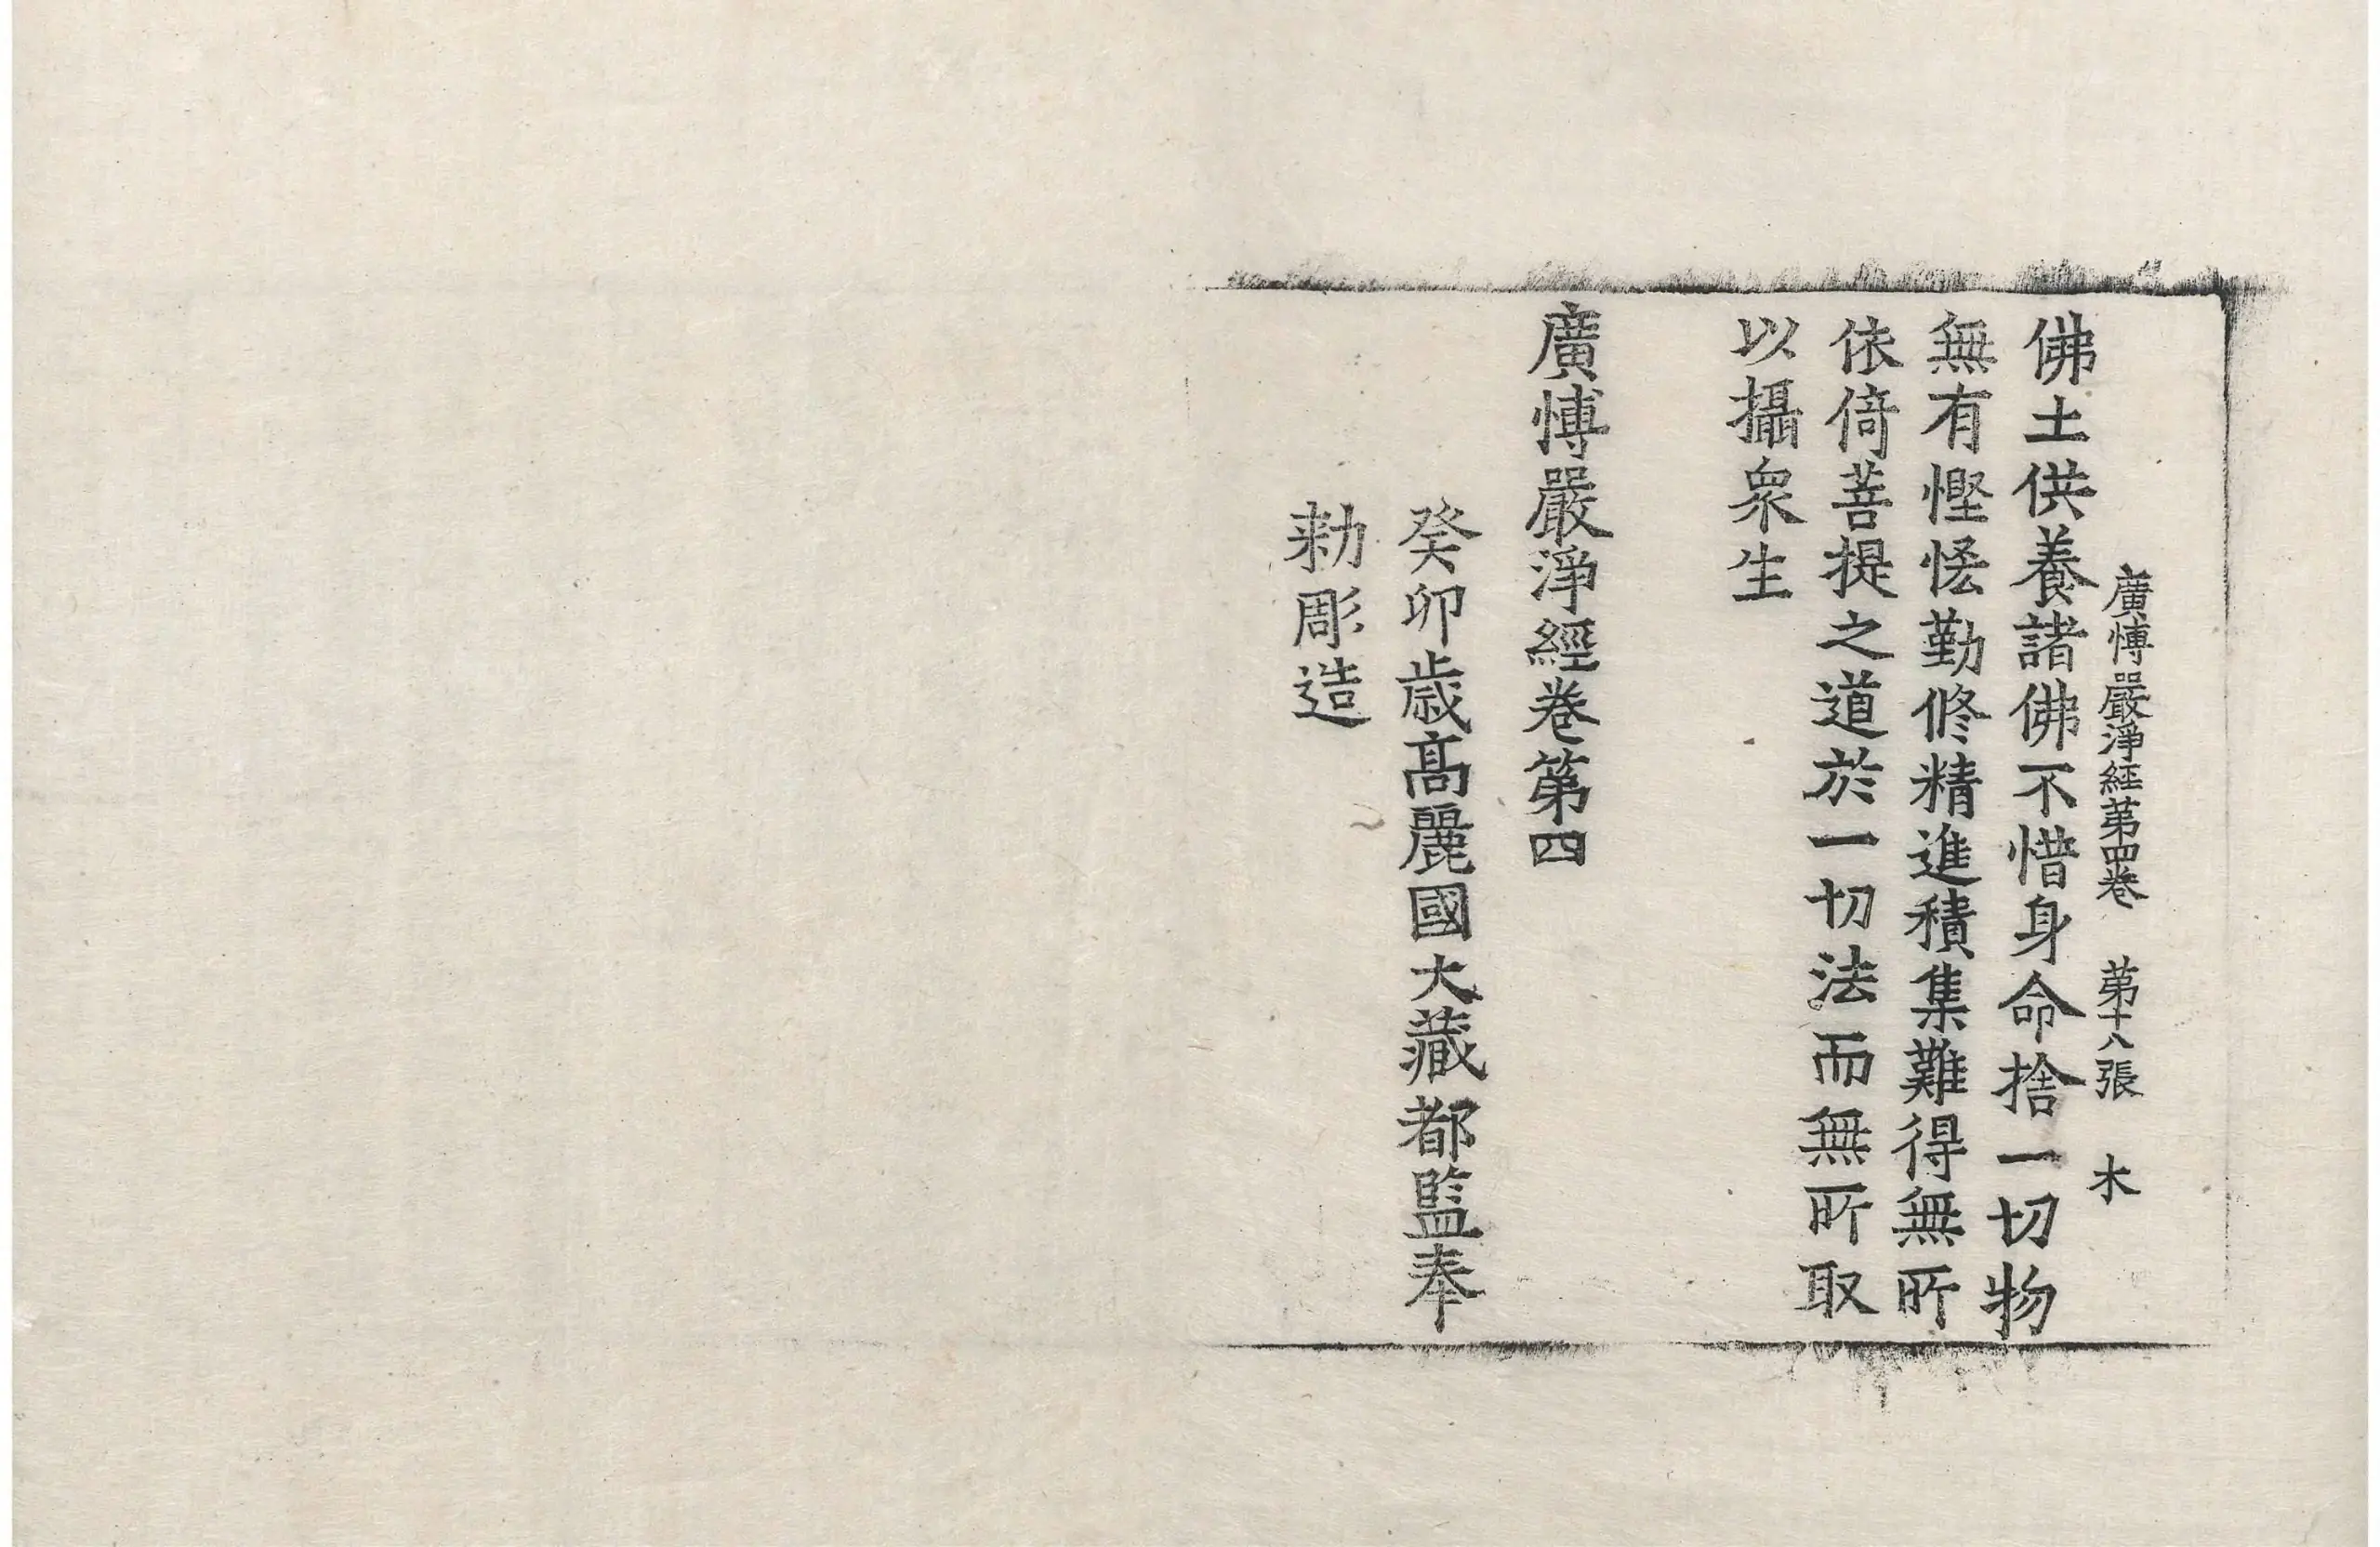 廣愽嚴淨經第四卷 第十八張 木
佛土供養諸佛不惜身命捨一切物
無有慳恡勤修精進積集難得無所
依倚菩提之道於一切法而無所取
以攝衆生
廣愽嚴淨經卷第四
癸卯歲高麗國大藏都監奉
勅彫造